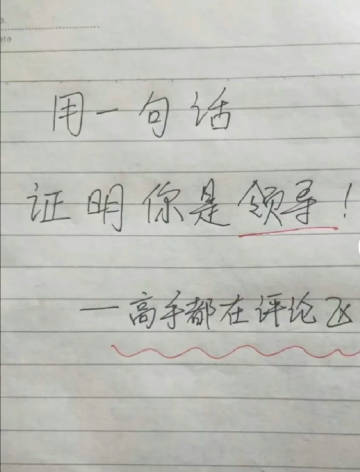 用一句话
证明你是领导！
—高手都在评论区